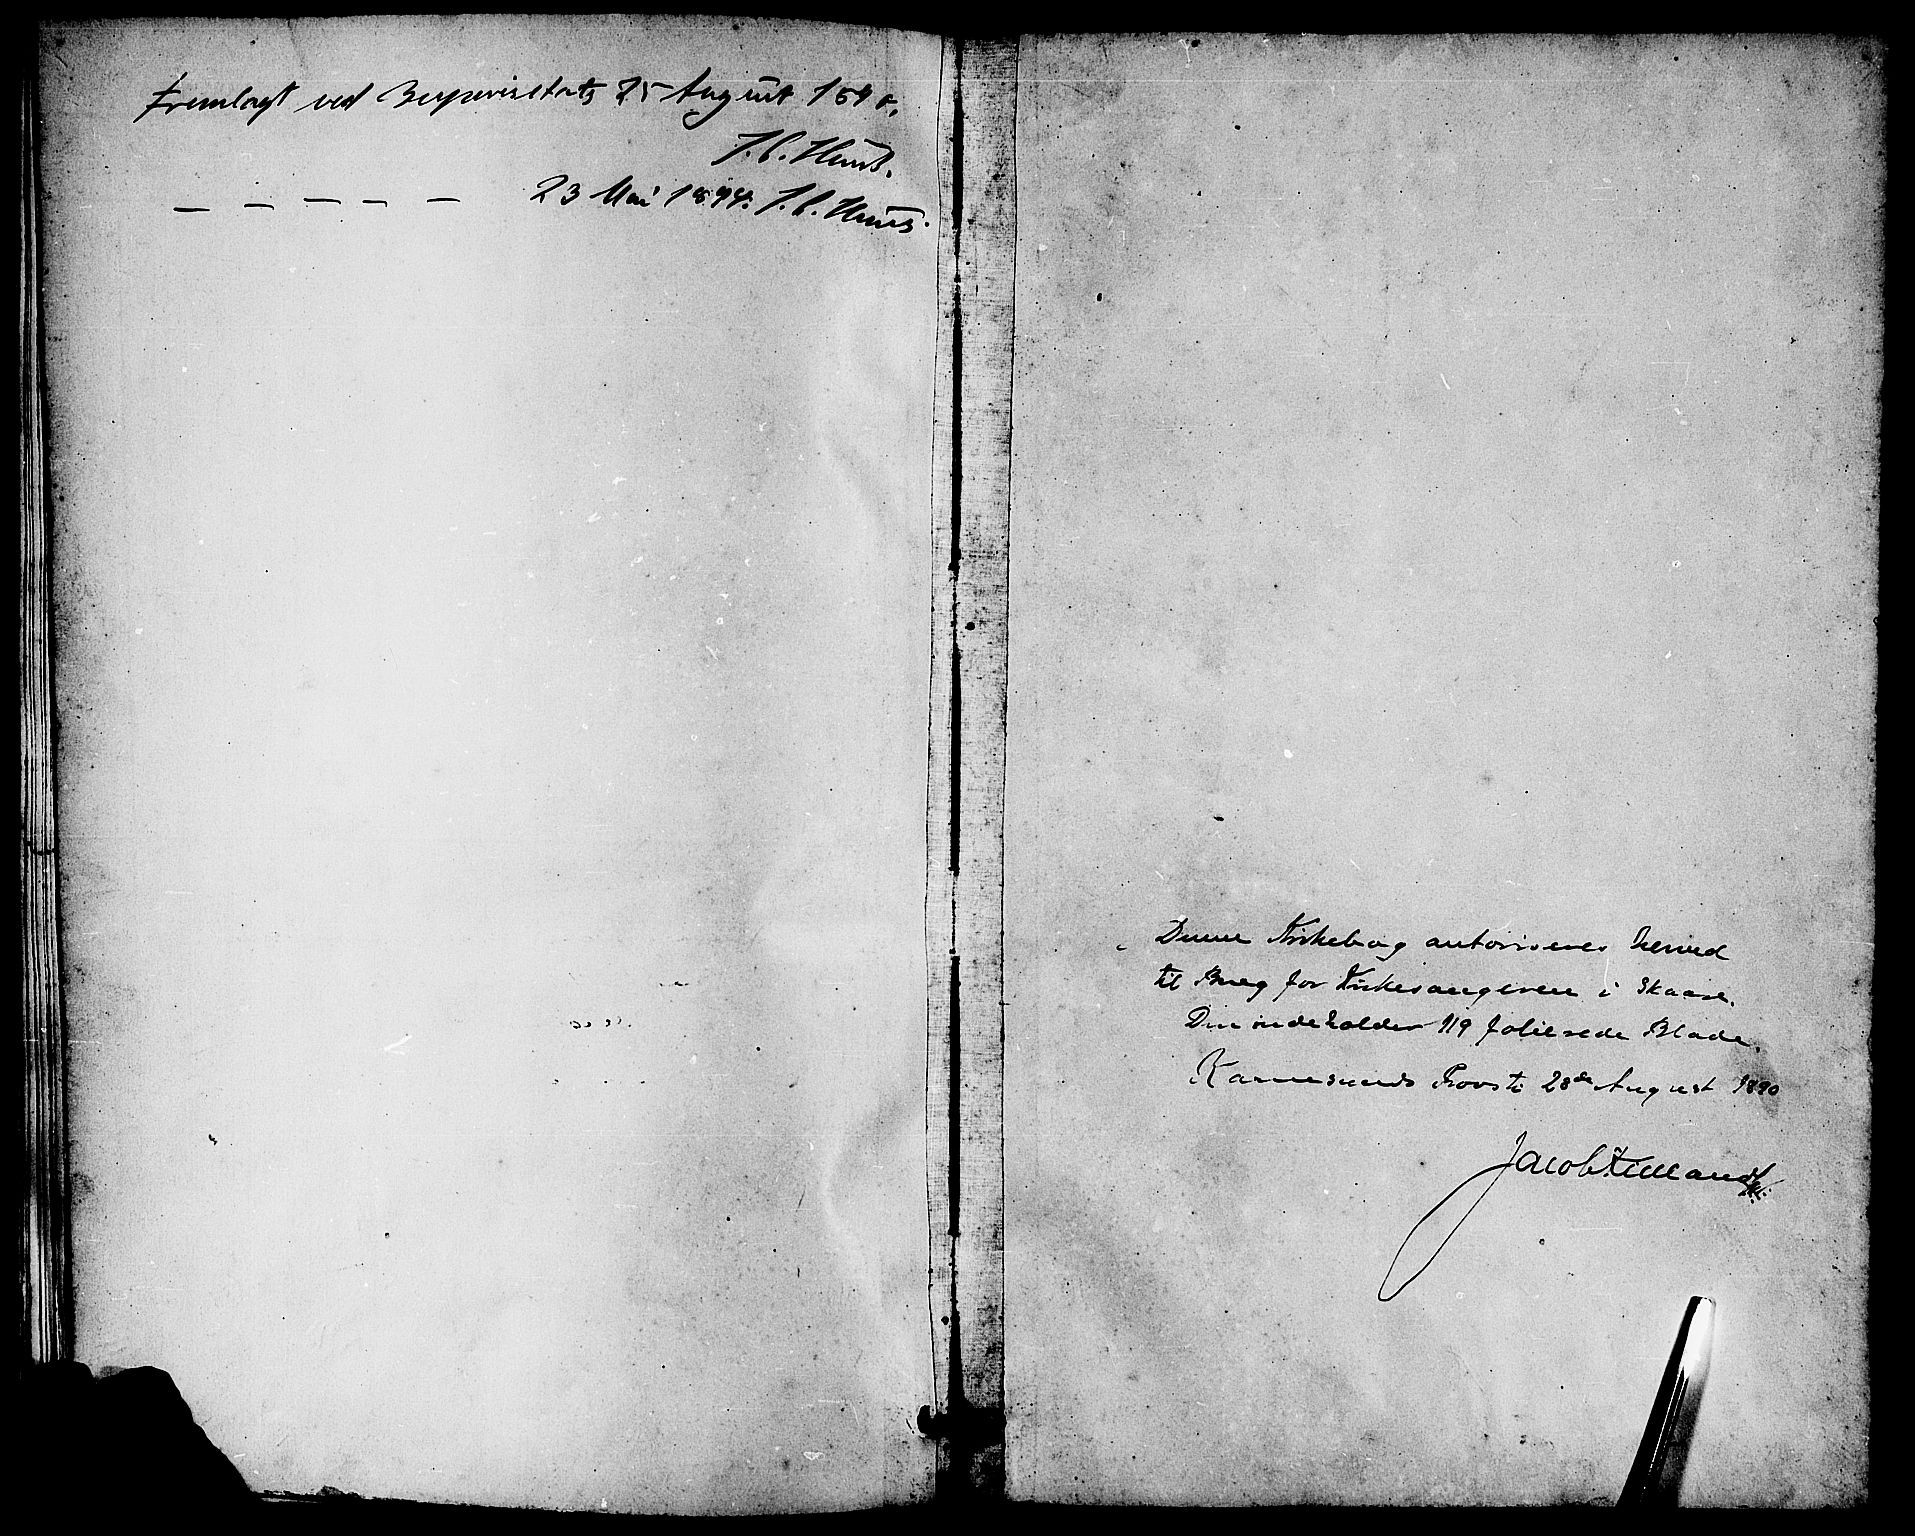 Fremlagt ved Bispevisitats 25 August 189
— — — — — 23 Mai 1894.
Denne Kirkebog autoriseres herved
til Brug for Kirkesangeren i Skaare.
Den indeholder 119 folierede Blade.
Karmsunds Provsti 28de August 1890
Jacob Kielland